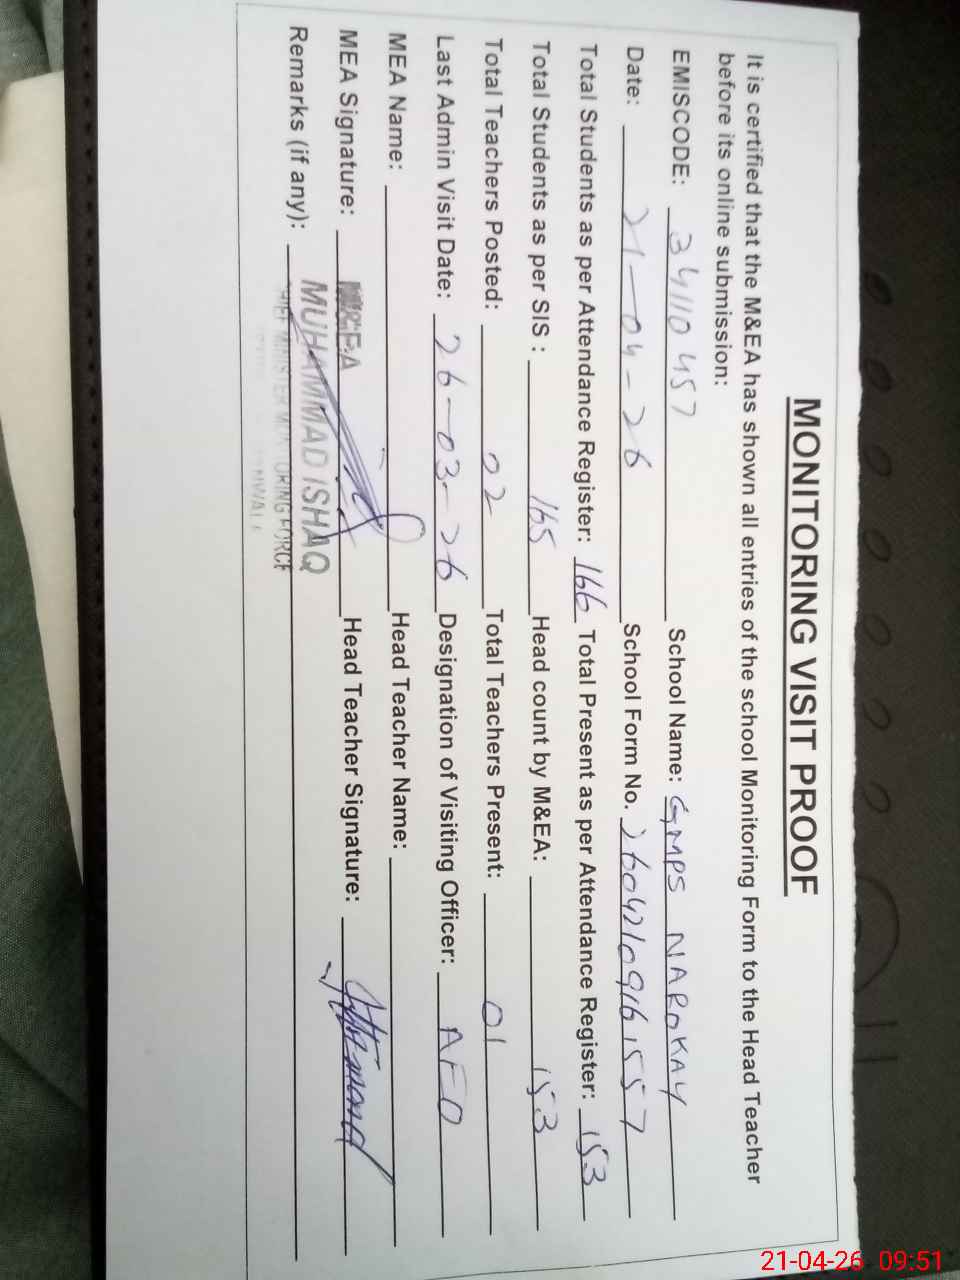 MONITORING VISIT PROOF
It is certified that the M&EA has shown all entries of the school Monitoring Form to the Head Teacher
before its online submission:
EMISCODE: 34110457 School Name: GMPS NAROKAY
Date: 21-04-26 School Form No. 26042109161557
Total Students as per Attendance Register: 166 Total Present as per Attendance Register: 153
Total Students as per SIS : 165 Head count by M&EA: 153
Total Teachers Posted: 02 Total Teachers Present: 01
Last Admin Visit Date: 26-03-26 Designation of Visiting Officer: AEO
MEA Name: Head Teacher Name:
MEA Signature: Head Teacher Signature:
Remarks (if any):
MUHAMMAD ISHAQ
21-04-26 09:51